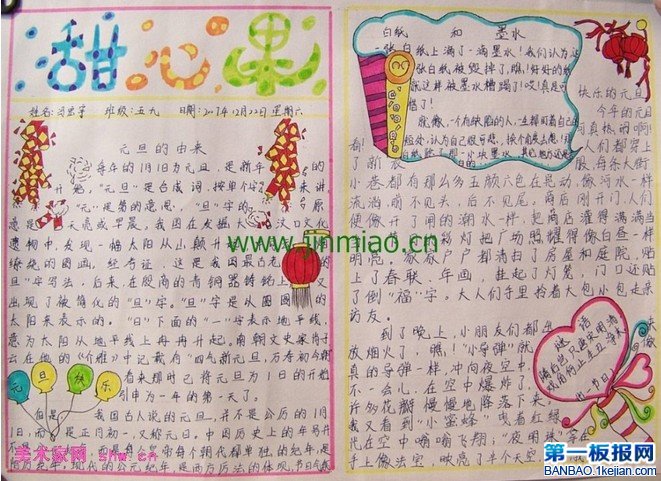 甜心果
班级:五九 日期:2007年12月22日星期六
元旦的由来
每年的1月1日为元旦,是新年的
开始。"元旦"是合成词,按单个字来讲,
"元"是第的意思,"旦"字的原
意是天亮或早晨。我国在发掘大汶口文化
遗物中,发现一幅太阳从山颠升
缭绕的图画。经考证,这是我国最古老
"旦"字写法。后来,在殷商的青铜器铸铭上,又
出现了被简化的"旦"字。"旦"字是从圆圆的
太阳来表示的。"日"下面的"一"字表示地平线,
意为太阳从地平线上冉冉升起。南朝文史家肖子
云在他的《介雅》中记载有"四气新元旦,万寿初今朝"
看来那时已将元旦为1日的开始
引申为一年的第一天了。
元
旦
快
乐
但是,我国古人说的元旦,并不是公历的1月
1日,而是正月初一,又称元日。中国历史上的年号并
年号每个朝代都单独的纪年,是
现代的公元纪年,是西方历法的体现
白纸 和 墨水
一张白纸上滴了一滴墨水!我们认为这
张白纸被毁掉了,瞧!好好的纸
就这样被墨水糟蹋了!哎!真是可
惜了!
就像,一个有缺陷的人,
快乐的元旦
今年的元旦
可真热闹啊!
看!人们都穿上
了新衣服,每条大街
小巷都有那么多五颜六色在晃动,像河水一样
流淌,前不见头,后不见尾。商店刚开门,人们
便像开了闸的潮水一样,把商店灌得满满当
灯把广场照耀得像白昼一样
明亮。家家户户都清扫了房屋和庭院,贴
上了春联、年画,挂起了灯笼,门口还贴
了倒"福"字。大人们手里拎着大包小包走亲
访友。
到了晚上,小朋友们都
放烟火了,瞧!"小导弹"就
真的导弹一样,冲向夜空中,
不一会儿,在空中爆炸了,
许多花瓣慢慢地降落下来。
我又看到"小蜜蜂"拽着红绿
光在空中嗡嗡飞翔;"夜明珠"
手上像法空,映亮了半个天空
谜语
www.jinmiao.cn
美术家网 snw.cn
第一板报网
BANBAO.1kejian.com